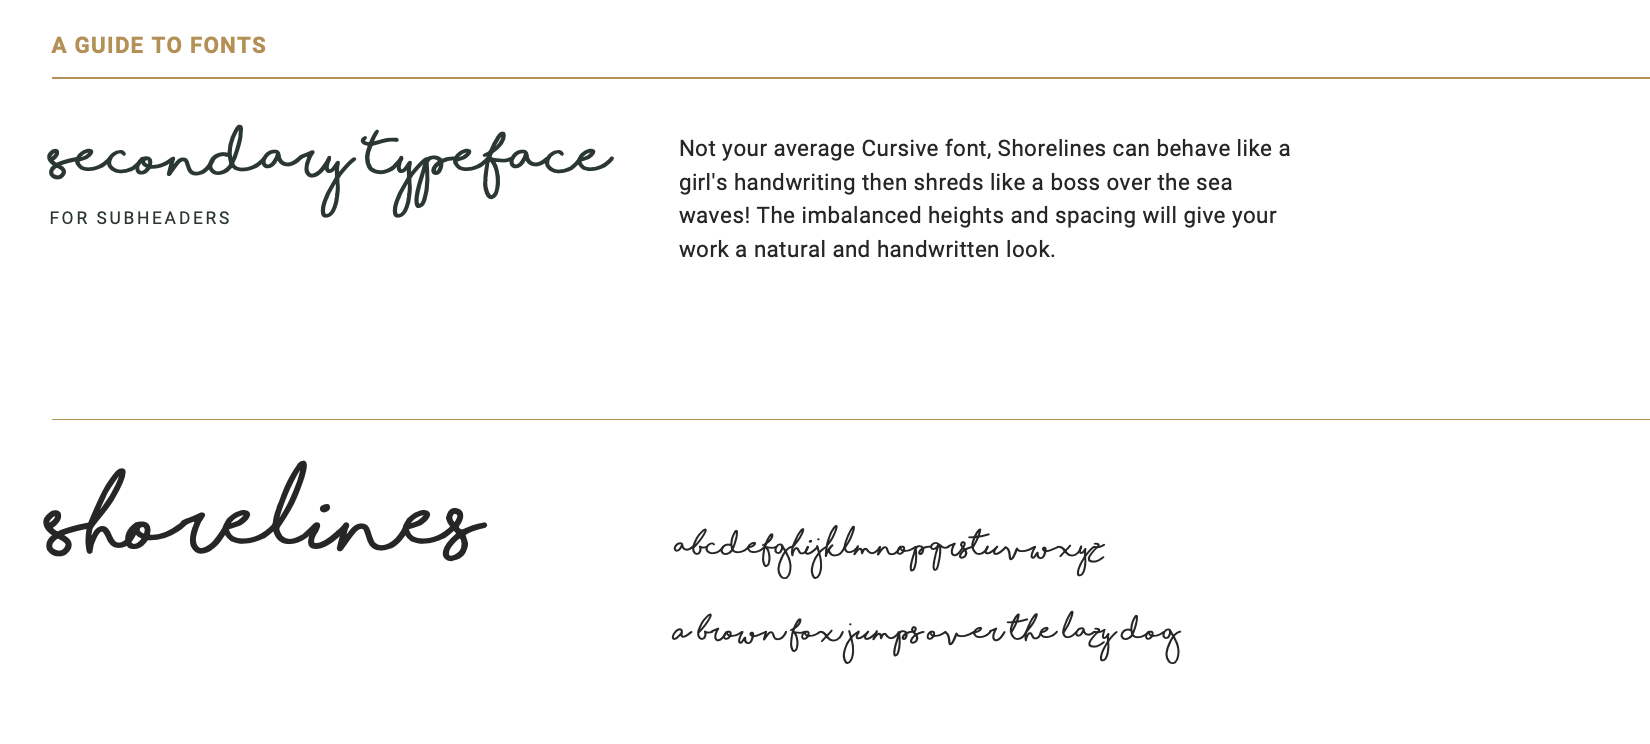 A GUIDE TO FONTS
secondary typeface
FOR SUBHEADERS
Not your average Cursive font, Shorelines can behave like a
girl's handwriting then shreds like a boss over the sea
waves! The imbalanced heights and spacing will give your
work a natural and handwritten look.
shorelines
abcdefghijklmnopqrstuvwxyz
a brown fox jumps over the lazy dog